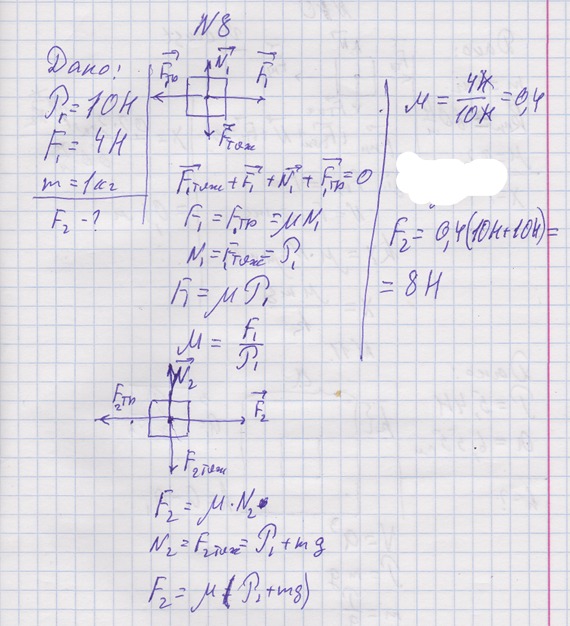 N8
Дано:
P₁ = 10Н
F₁ = 4Н
m = 1кг
F₂ - ?
F⃗тр N⃗₁ F⃗₁
F⃗тяж
F⃗₁тяж + F⃗₁ + N⃗₁ + F⃗₁тр = 0
F₁ = F₁тр = μN₁
N₁ = F₁тяж = P₁
F₁ = μP₁
μ = F₁/P₁
N⃗₂
F₂тр F⃗₂
F₂тяж
F₂ = μ·N₂
N₂ = F₂тяж = P₁ + mg
F₂ = μ(P₁ + mg)
μ = 4Н/10Н = 0,4
F₂ = 0,4(10Н+10Н) =
= 8Н